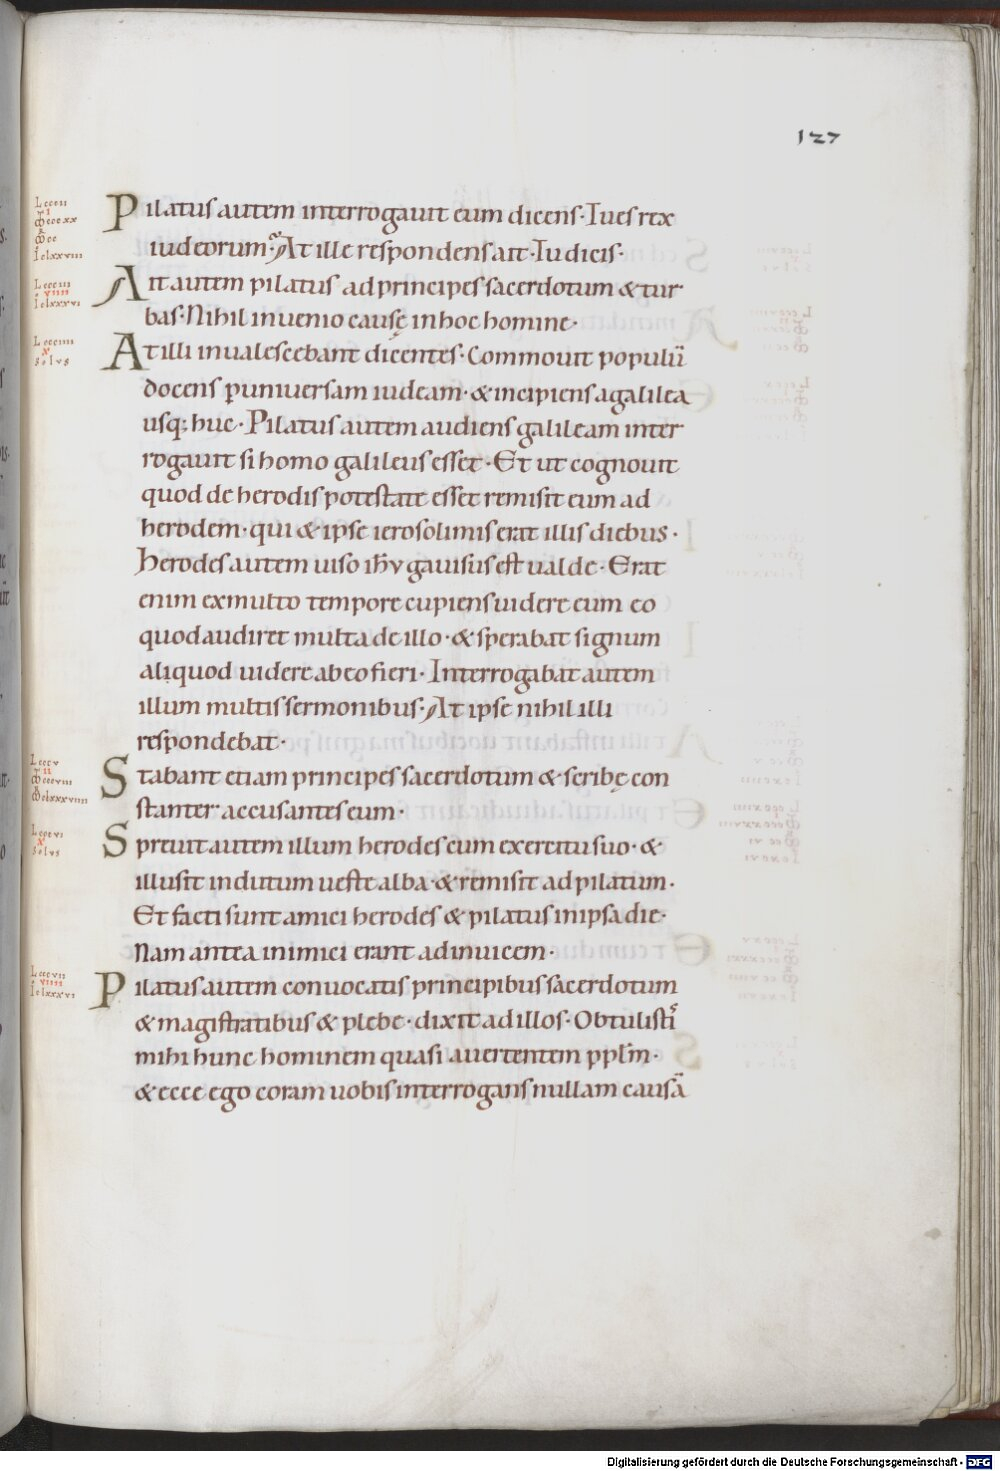 127
Pilatus autem interrogauit eum dicens· Tu es rex
iudeorum· At ille respondens ait· Tu dicis·
Ait autem pilatus ad principes sacerdotum & tur
bas· Nihil inuenio causę in hoc homine·
At illi inualescebant dicentes· Commouit populū
docens ꝑ uniuersam iudeam· & incipiens a galilea
usq; huc· Pilatus autem audiens galileam inter
rogauit si homo galileus esset· Et ut cognouit
quod de herodis potestate esset remisit eum ad
herodem· qui & ipse ierosolimis erat illis diebus·
Herodes autem uiso ihu gauisus est ualde· Erat
enim ex multo tempore cupiens uidere eum eo
quod audiret multa de illo· & sperabat signum
aliquod uidere ab eo fieri· Interrogabat autem
illum multis sermonibus· At ipse nihil illi
respondebat·
Stabant etiam principes sacerdotum & scribę con
stanter accusantes eum·
Spreuit autem illum herodes cum exercitu suo· &
illusit indutum ueste alba· & remisit ad pilatum·
Et facti sunt amici herodes & pilatus in ipsa die·
Nam antea inimici erant ad inuicem·
Pilatus autem conuocatis principibus sacerdotum
& magistratibus & plebe· dixit ad illos· Obtulistī
mihi hunc hominem quasi auertentem pplm̄·
& ecce ego coram uobis interrogans nullam causā
Lcccii
Lccciii
viiii
Lccciiii
x
solus
Lcccv
Lcccvi
x
solus
Lcccvii
viiii
Digitalisierung gefördert durch die Deutsche Forschungsgemeinschaft - DFG